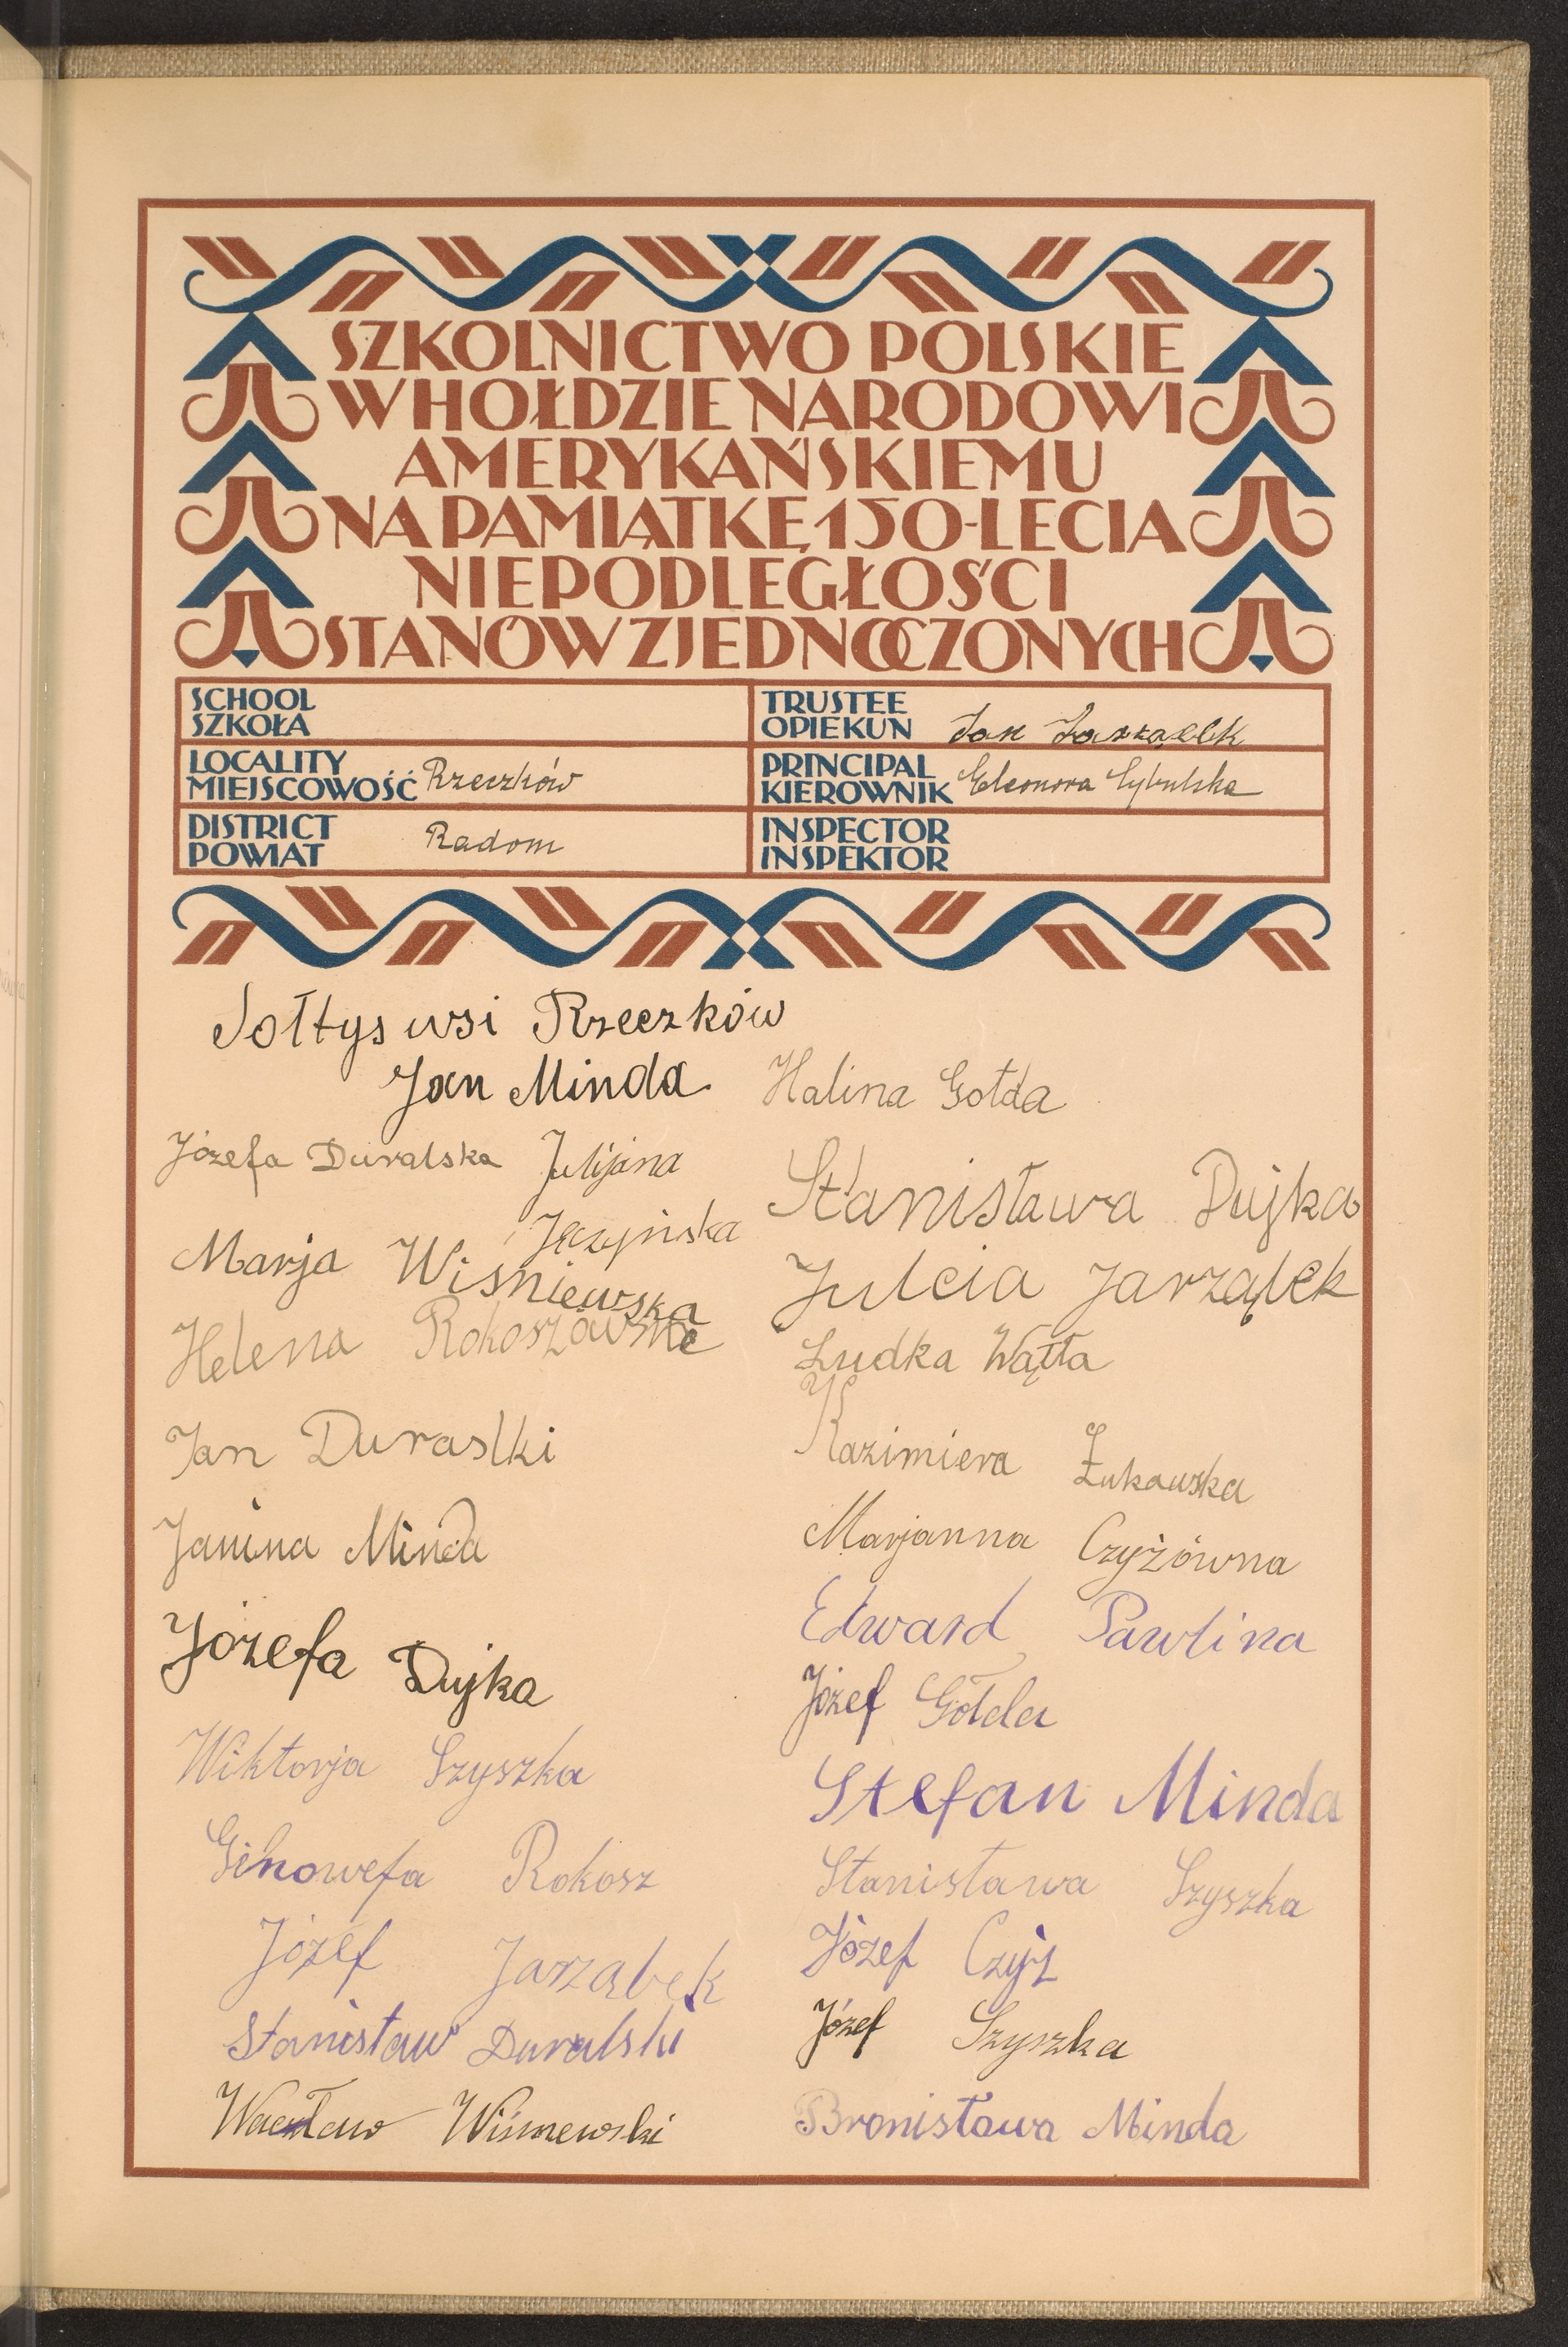 SZKOLNICTWO POLSKIE
W HOŁDZIE NARODOWI
AMERYKAŃSKIEMU
NA PAMIĄTKĘ 150-LECIA
NIEPODLEGŁOŚCI
STANÓW ZJEDNOCZONYCH
SCHOOL
SZKOŁA
TRUSTEE
OPIEKUN Jan
LOCALITY
MIEJSCOWOŚĆ Rzeczków
PRINCIPAL
KIEROWNIK Eleonora Cybulska
DISTRICT
POWIAT Radom
INSPECTOR
INSPEKTOR
Sołtys wsi Rzeczków
Jan Minda
Józefa Duralska
Julijana
Jęczyńska
Marja Wiśniewska
Helena
Jan Duraslki
Janina Minda
Józefa Dujka
Wiktorja Szyszka
Genowefa Rokosz
Józef Jarząbek
Stanisław Duralski
Wacław Wiśniewski
Halina Gołda
Stanisława Dujka
Julcia Jarząbek
Ludka Wątła
Kazimiera Żukawska
Marjanna Czyżówna
Edward Pawlina
Józef Gołda
Stefan Minda
Stanisława Szyszka
Józef Czyż
Józef Szyszka
Bronisława Minda